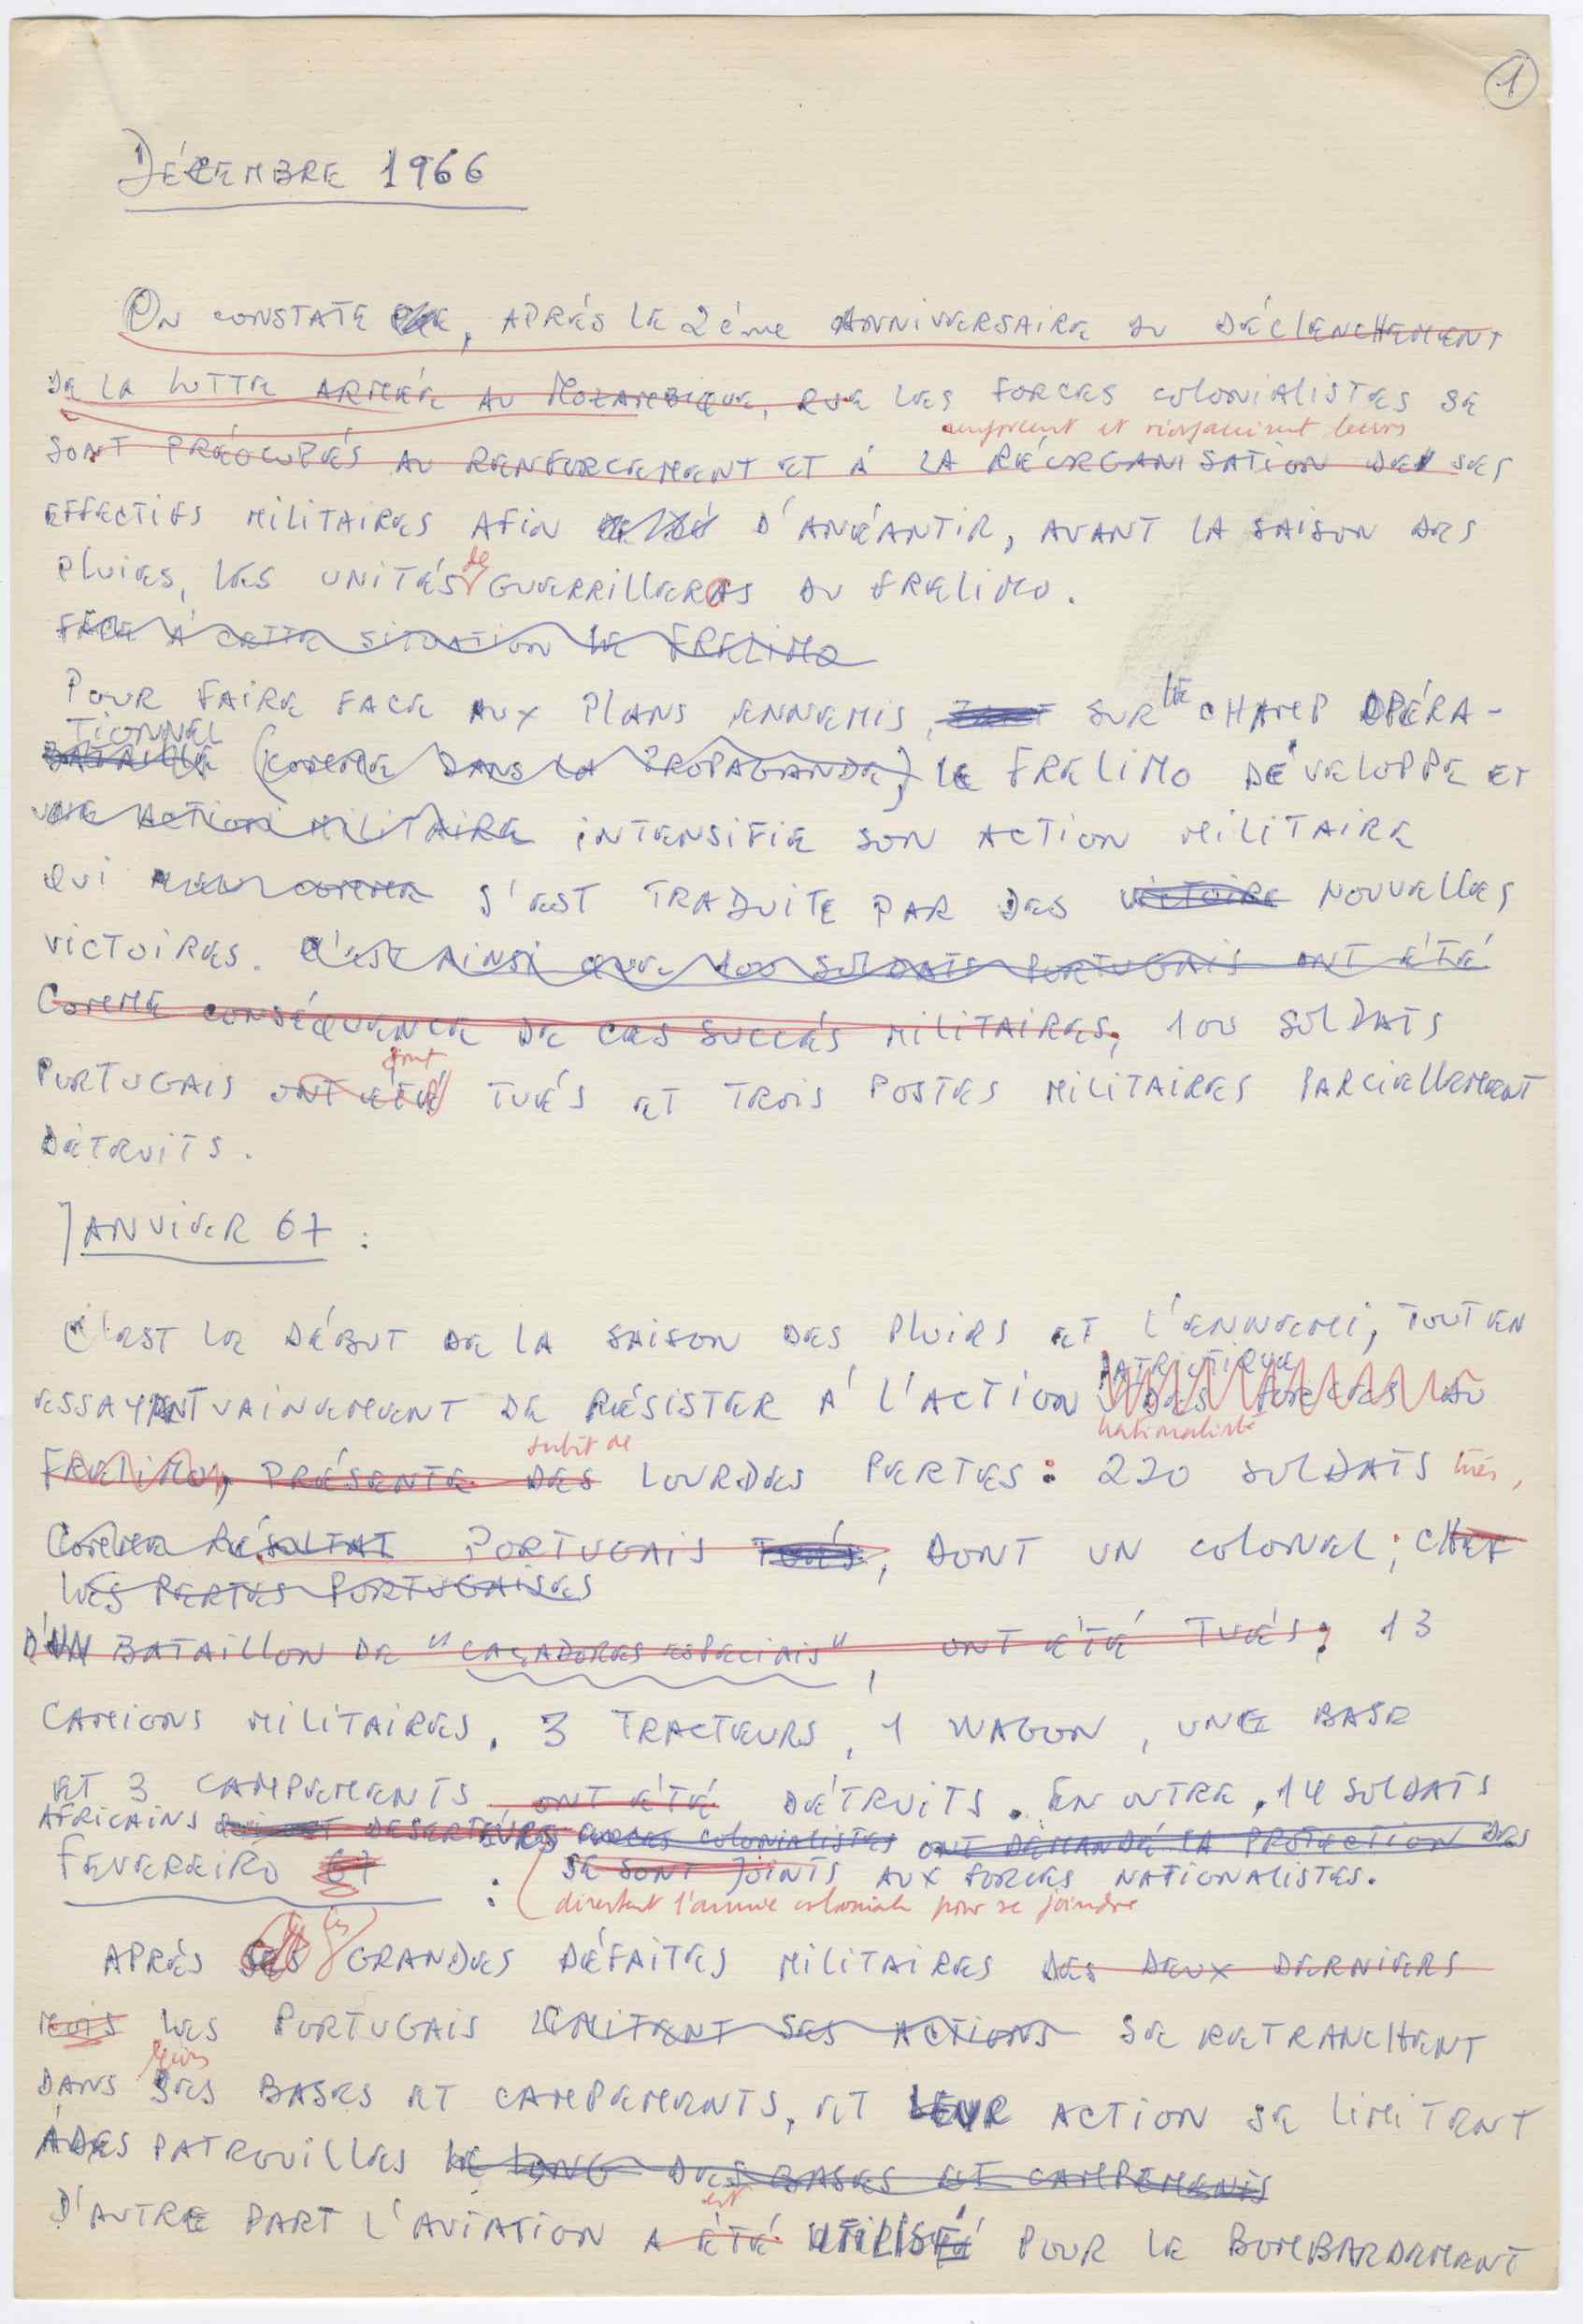 1
DÉCEMBRE 1966
ON CONSTATE, APRÉS LE 2éme ANNIVERSAIRE DU DÉCLENCHEMENT
DE LA LUTTE ARMÉE AU MOZAMBIQUE, QUE LES FORCES COLONIALISTES SE
renforcent et réorganisent leurs
SONT PRÉOCUPÉS AU RENFORCEMENT ET Á LA RÉORGANISATION DE SES
EFFECTIFS MILITAIRES AFIN D'ANÉANTIR, AVANT LA SAISON DES
de
PLUIES, LES UNITÉS GUERRILLEROS DU FRELIMO.
FACE Á CETTE SITUATION LE FRELIMO
POUR FAIRE FACE AUX PLANS ENNEMIS, SUR LE CHAMP OPÉRA-
TIONNEL
BATAILLE (COMME DANS LA PROPAGANDE) LE FRELIMO DÉVELOPPE ET
UNE ACTION MILITAIRE INTENSIFIE SON ACTION MILITAIRE
QUI COMME S'EST TRADUITE PAR DES VICTOIRE NOUVELLES
VICTOIRES. C'EST AINSI QUE 100 SOLDATS PORTUGAIS ONT ÉTÉ
COMME CONSÉQUENCE DE CES SUCCÉS MILITAIRES, 100 SOLDATS
sont
PORTUGAIS ONT ÉTÉ TUÉS ET TROIS POSTES MILITAIRES PARCIELLEMENT
DÉTRUITS.
JANVIER 67 :
C'EST LE DÉBUT DE LA SAISON DES PLUIES ET L'ENNEMI, TOUT EN
PATRIOTIQUE
ESSAYANT VAINEMENT DE RÉSISTER Á L'ACTION DES FORCES DU
nationaliste
subit de
FRELIMO, PRÉSENTE DES LOURDES PERTES: 220 SOLDATS tués,
COMME RÉSULTAT PORTUGAIS TUÉS, DONT UN COLONEL; CHEF
LES PERTES PORTUGAISES
D'UN BATAILLON DE "CAÇADORES ESPECIAIS", ONT ÉTÉ TUÉS; 13
CAMIONS MILITAIRES, 3 TRACTEURS, 1 WAGON, UNE BASE
ET 3 CAMPEMENTS ONT ÉTÉ DÉTRUITS. EN OUTRE, 14 SOLDATS
AFRICAINS DESERTEURS FORCES COLONIALISTES ONT DEMANDÉ LA PROTECTION DES
FEVEREIRO 67 : SE SONT JOINTS AUX FORCES NATIONALISTES.
désertent l'armée coloniale pour se joindre
les
APRÈS SES GRANDES DÉFAITES MILITAIRES DES DEUX DERNIERS
MOIS LES PORTUGAIS LIMITENT SES ACTIONS SE RETRANCHENT
leurs
DANS SES BASES ET CAMPEMENTS, ET LEUR ACTION SE LIMITENT
Á DES PATROUILLES LE LONG DES BASES ET CAMPEMENTS
est
D'AUTRE PART L'AVIATION A ÉTÉ UTILISÉ POUR LE BOMBARDEMENT